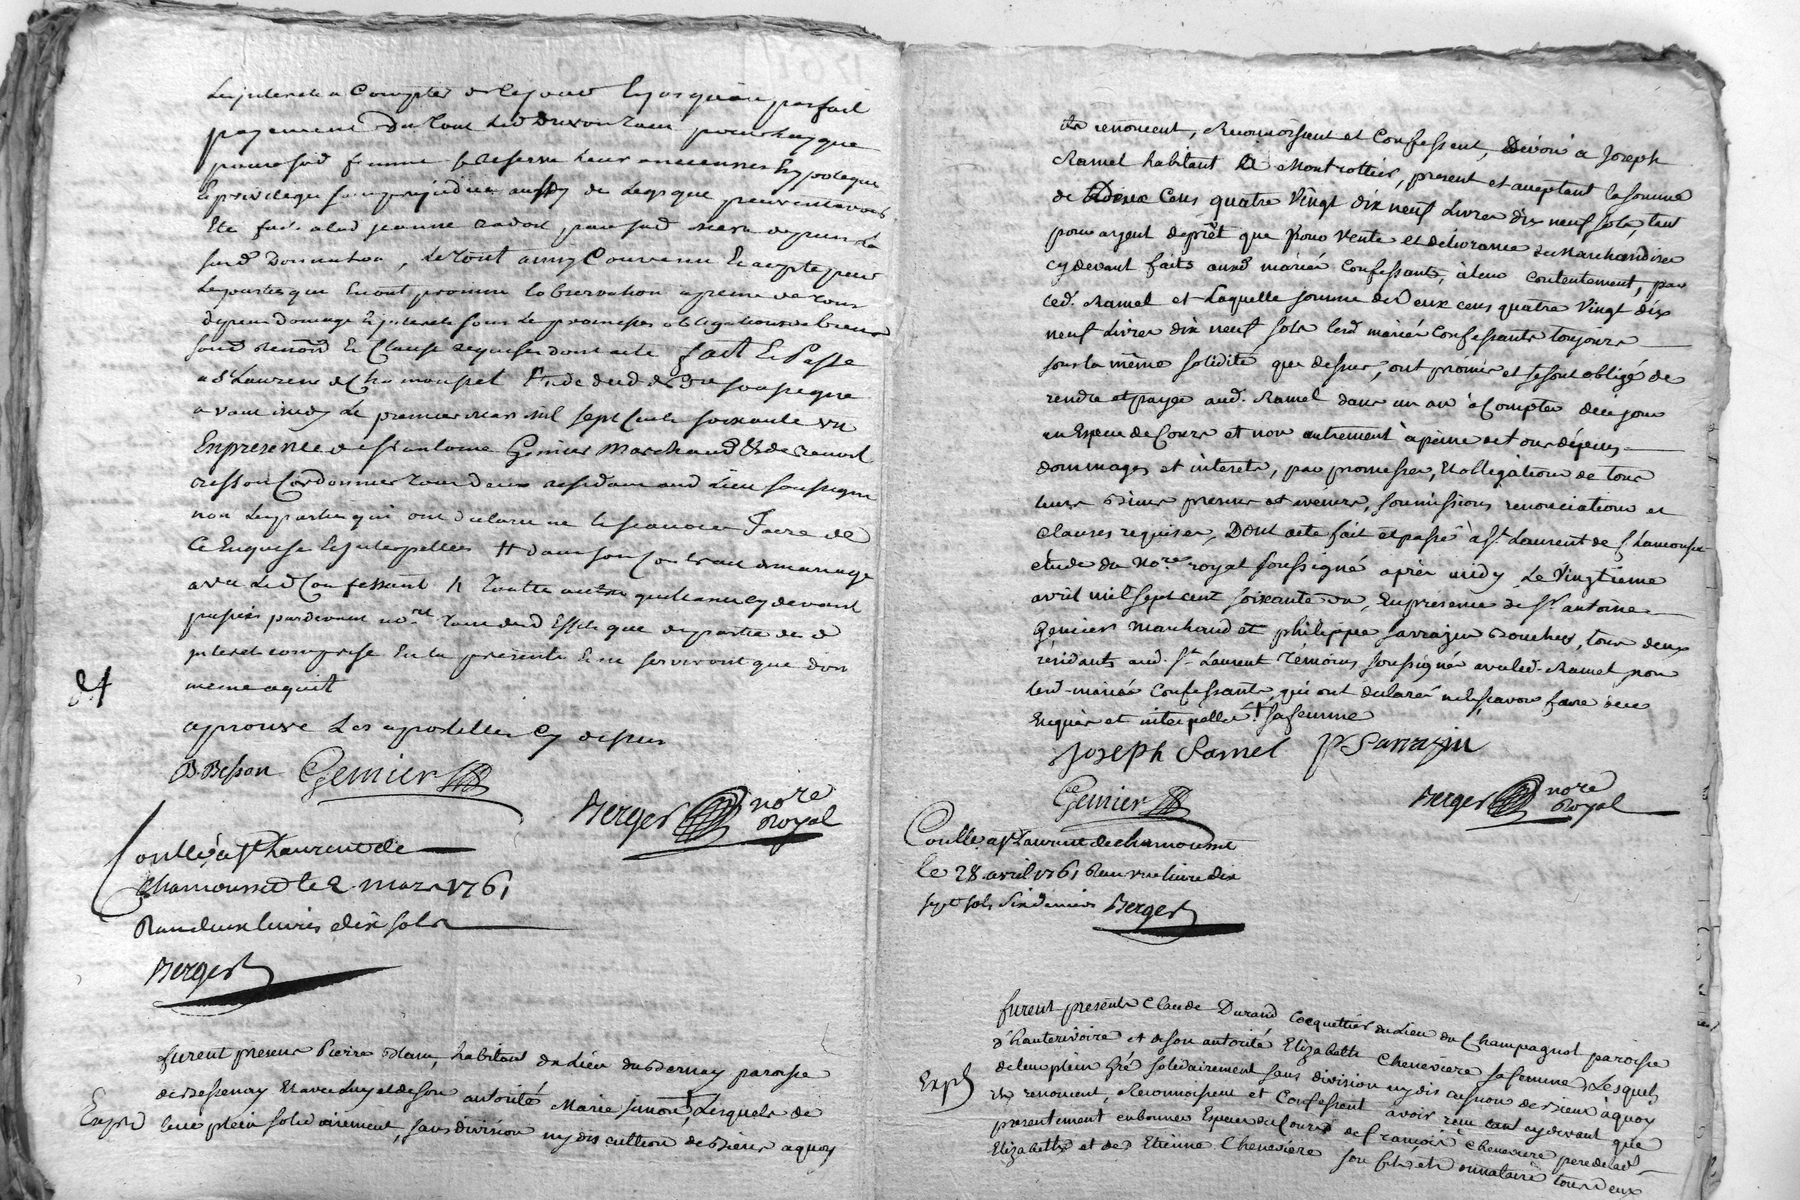 Les interets a Compter de ce jour Jusques au parfait
payement Du tout
pour sad. femme se reserve leurs anciennes hypoteque
Et privilege sans prejudice aussy de
Ete fait a lad jeanne pour sad
susd Donnation, Le tout ainsy Convenu Et accepté
Les parties qui En ont promis lobservation a peine de tous
depens Domage Et interets sous Les promesses obligations de biens
soum. renon. Et Clauses requises dont acte fait Et Passé
a St Laurent de Chamousset Etude dud no.re soussigné
avant midy Le premier mars mil sept cent soixante un
En presence de Sr antoine Genier Marchand Et de benoist
besson Cordonnier tous deux residants aud Lieu soussignes
non Les parties qui ont declaré ne le scavoir faire de
Ce Enquises Et interpellées # dans son Contrat de mariage
avec led Confessant # toutte autre quittance cy devant
passées pardevant no.re
interets comprise En la presente Et ne serviront que d'un
meme aquit
aprouvé Les apostilles cy dessus
B Besson Genier
Berger no.re Royal
Controllé a St Laurent de
Chamousset le 2 mars 1761
Reçu deux livres dix sols
Berger
furent presens Pierre habitant du Lieu du Bernay paroisse
de Bessenay Et avec Luy et de son autorité Marie Simon, Lesquels de
Exp.é leur plein solidairement, sans division ny discution de biens a quoy
ils renoncent, Reconnoissent et Confessent, Devoir à Joseph
Ramel habitant a Montrottier, present et acceptant la somme
de Deux Cens quatre Vingt dix neuf Livres dix neuf sols, tant
pour argent de prêt que pour vente et delivrance de Marchandises
cy devant faits auxd mariés Confessants, à leur contentement, par
led. Ramel et Laquelle somme de Deux cens quatre Vingt dix
neuf Livres dix neuf sols lesd mariés Confessants toujours
sous la même solidité que dessus, ont promis et se sont obligé de
rendre et payer aud. Ramel dans un an à Compter de ce jour
en Espece de Cours et non autrement à peine de tous depens
dommages et interets, par promesses, Et obligations de tous
leurs Biens presens et avenirs, soumissions renonciations et
clauses requises, Dont acte fait et passé à St. Laurent de Chamousset
etude du no.re royal soussigné après midy Le Vingtieme
avril mil sept cent soixante un, En presence de Sr. antoine
Genier Marchand et philippe Sarrazin Boucher, tous deux
residants aud. St. Laurent Témoins soussignés avec led. Ramel non
lesd. mariés Confessants qui ont declaré ne le scavoir faire de ce
Enquis et interpellé. † sa femme
Joseph Ramel P Sarrazin
Genier
Berger no.re Royal
Controllé a St Laurent de chamousset
le 28 avril 1761 Reçu une livre dix
sept sols six deniers Berger
furent presents Claude Durand Coquettier du Lieu du Champagnol paroisse
d'hauterivoire et de son autorité Elizabette Chenevière sa femme, Lesquels
de leur plein gré solidairement sans division ny discussion de Biens à quoy
Exp.é ils renoncent, Reconnoissent et Confessent avoir reçu tant cy devant que
presentement en bonnes Espece du Cours de François Chenevière pere de lad.
Elizabette et de Etienne Chenevière son fils et donnataire tous deux